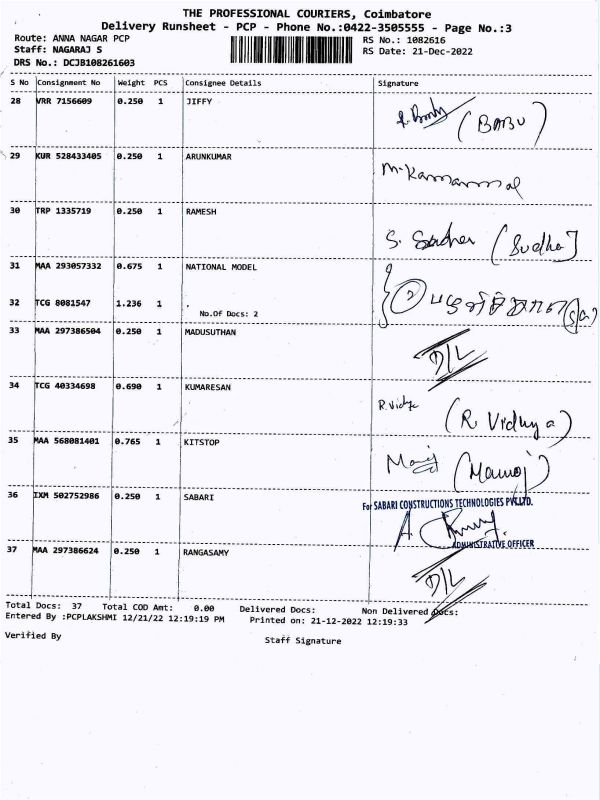 THE PROFESSIONAL COURIERS, Coimbatore
Delivery Runsheet - PCP - Phone No.:0422-3505555 - Page No.:3
Route: ANNA NAGAR PCP RS No.: 1082616
Staff: NAGARAJ S RS Date: 21-Dec-2022
DRS No.: DCJB108261603
S No Consignment No Weight PCS Consignee Details Signature
28 VRR 7156609 0.250 1 JIFFY (BABU)
29 KUR 528433405 0.250 1 ARUNKUMAR
30 TRP 1335719 0.250 1 RAMESH S. (Sudha)
31 MAA 293057332 0.675 1 NATIONAL MODEL
32 TCG 8081547 1.236 1 2
No.Of Docs: 2
33 MAA 297386504 0.250 1 MADUSUTHAN D/L
34 TCG 40334698 0.690 1 KUMARESAN R. Vidya (R Vidhya)
35 MAA 568081401 0.765 1 KITSTOP Manoj (Manoj)
36 IXM 502752986 0.250 1 SABARI
For SABARI CONSTRUCTIONS TECHNOLOGIES PVT.LTD.
ADMINISTRATIVE OFFICER
37 MAA 297386624 0.250 1 RANGASAMY D/L
Total Docs: 37 Total COD Amt: 0.00 Delivered Docs: Non Delivered Docs:
Entered By :PCPLAKSHMI 12/21/22 12:19:19 PM Printed on: 21-12-2022 12:19:33
Verified By Staff Signature